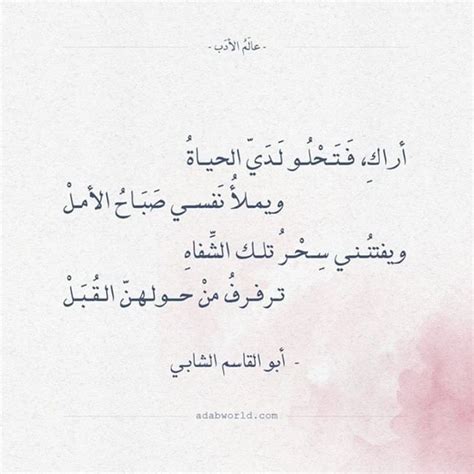 - عالَمُ الأدَب -
أراكِ، فَتَحْلُو لَدَيّ الحياةُ
ويملأُ نَفسي صَبَاحُ الأملْ
ويفتنُني سِحْرُ تلك الشِّفاهِ
ترفرفُ منْ حولهنّ القُبَلْ
- أبو القاسم الشابي
adabworld.com